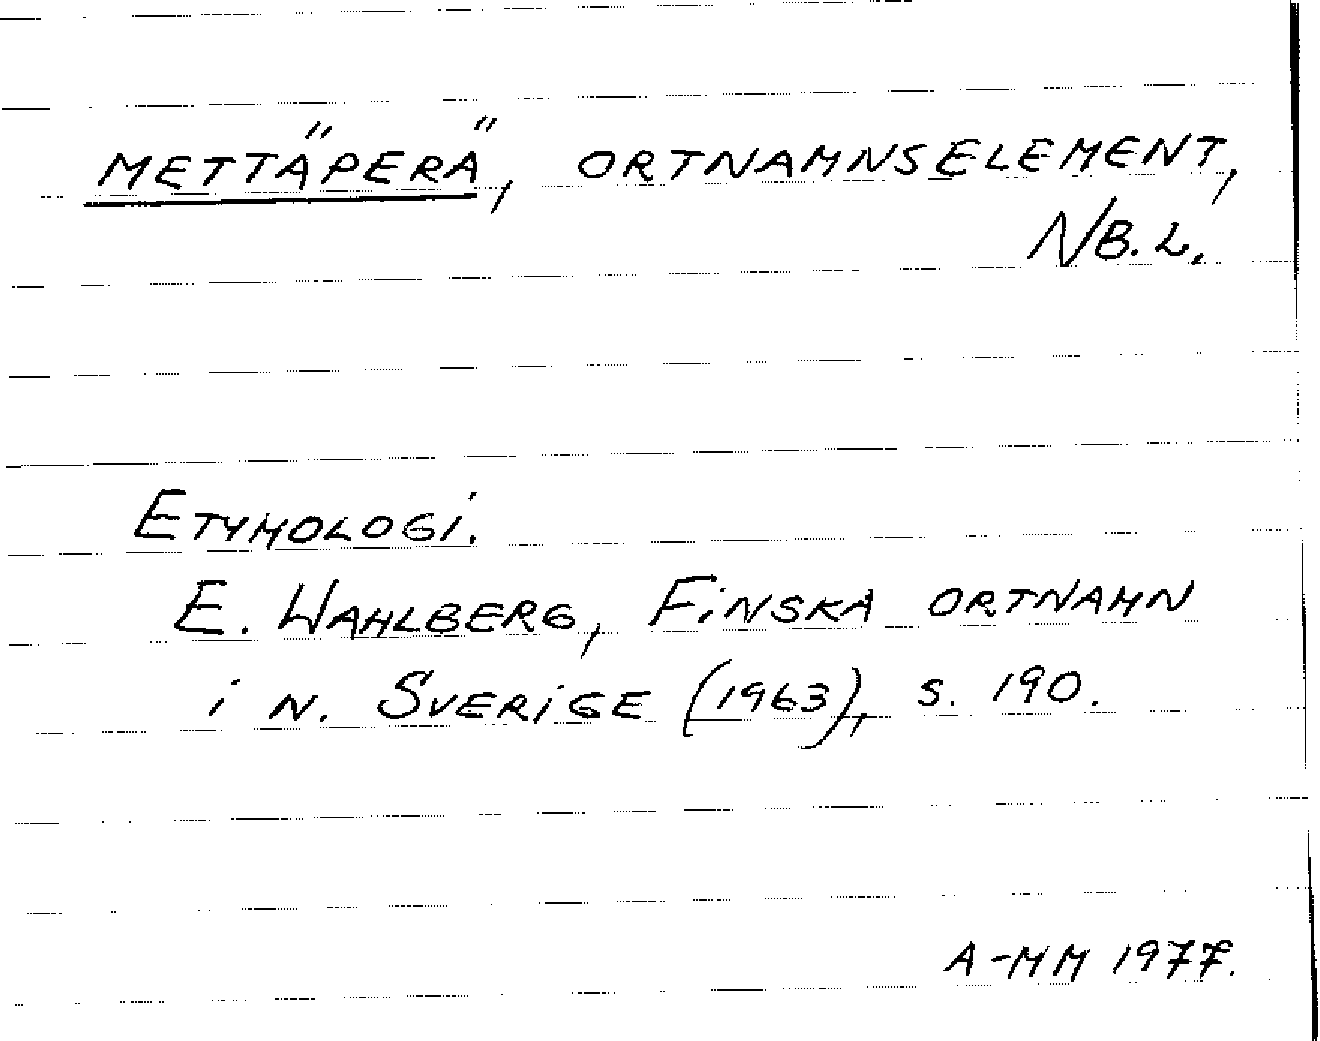 METTÄPERÄ, ORTNAMNSELEMENT,
NB.L.
ETYMOLOGI.
E. WAHLBERG, FINSKA ORTNAMN
i N. SVERIGE (1963), S. 190.
A-MM 1977.